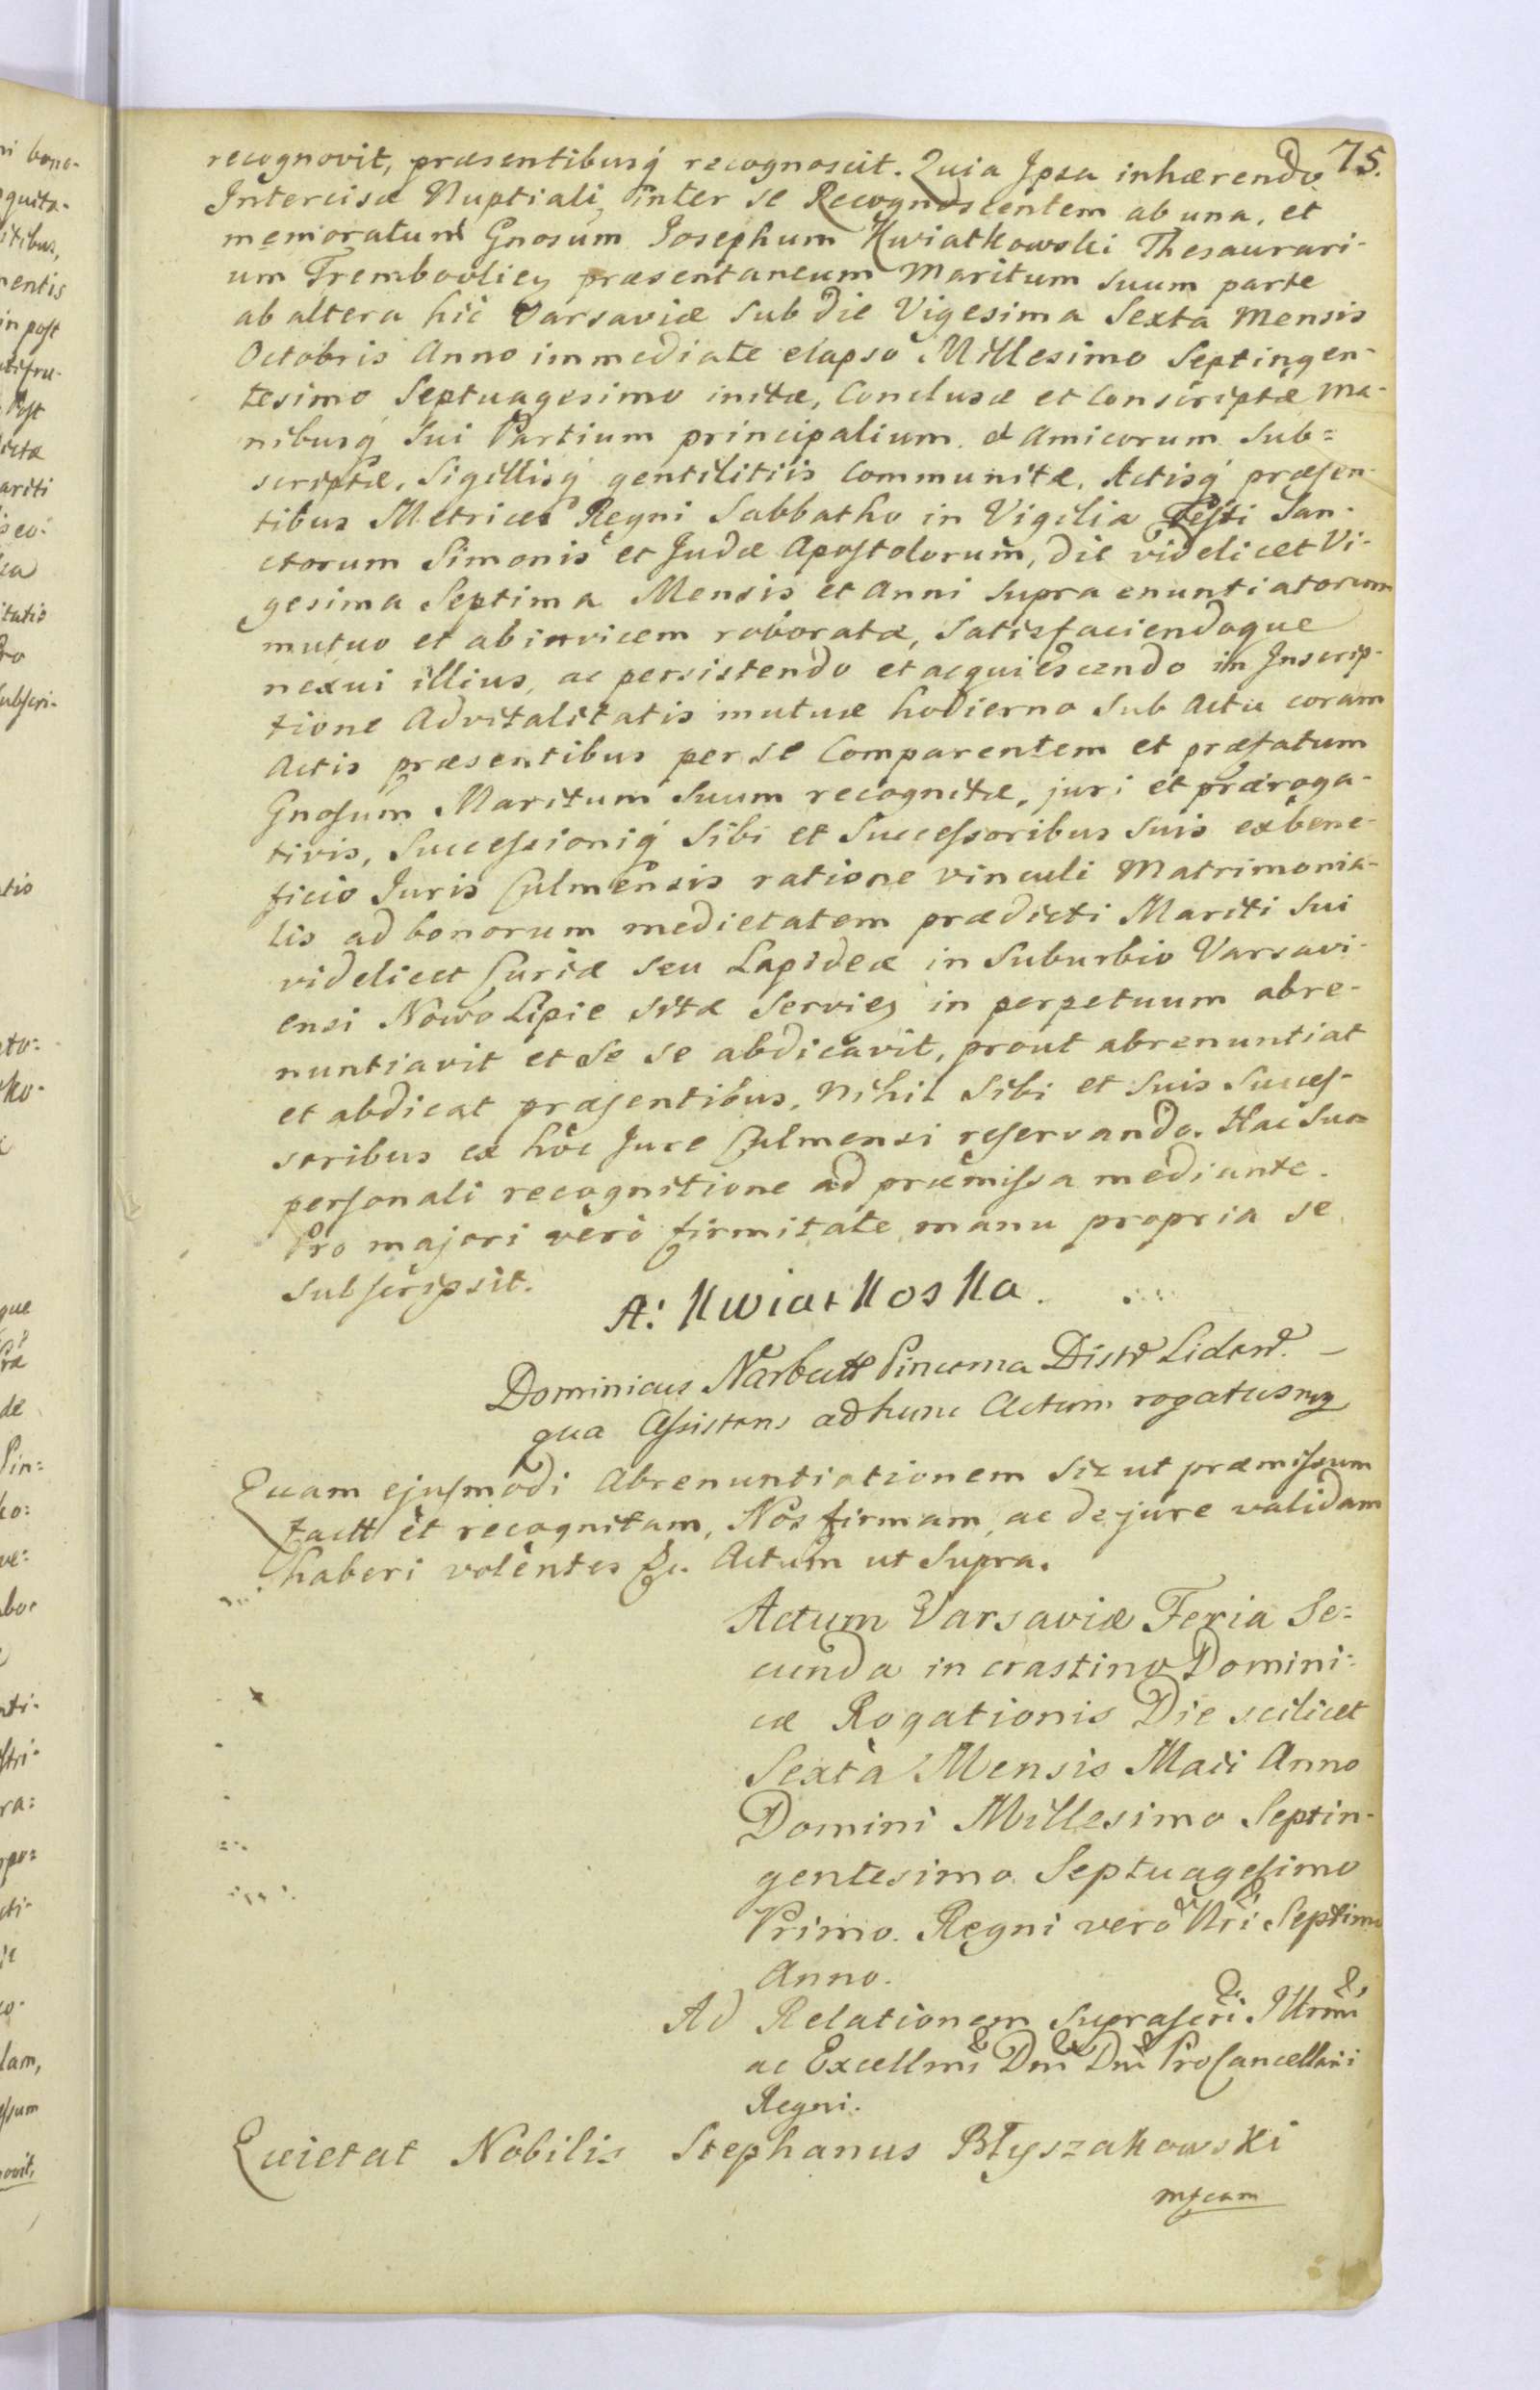 75.
recognovit, præsentibusq́ recognoscit. Quia Ipsa inhærendo
Intercisæ Nuptiali, inter se Recognoscentem ab una, et
memoratum Gnosum Josephum Kwiatkowski Thesaurari-
um Trembovlien præsentaneum Maritum suum parte
ab altera hic Varsaviæ sub die Vigesima Sexta Mensis
Octobris Anno immediate elapso Millesimo Septingen-
tesimo Septuagesimo initæ, Conclusæ et Conscriptæ ma-
nibusq́ sui Partium principalium et Amicorum sub=
scriptæ, Sigillisq́ gentilitiis communitæ, Actisq́ præsen-
tibus Metrices Regni Sabbatho in Vigilia Festi San-
ctorum Simonis et Judæ Apostolorum, die videlicet Vi-
gesima Septima Mensis et Anni supra enuntiatorum
mutuo et ab invicem roboratæ, satisfaciendoque
nexui illius, ac persistendo et acquiescendo in Inscrip-
tione Advitalitatis mutuæ hodierno sub Actu coram
Actis præsentibus per se Comparentem et præfatum
Gnosum Maritum suum recognitæ, juri et præroga-
tivis, Successioniq́ sibi et Successoribus suis ex bene-
ficio Juris Culmensis ratione vinculi Matrimonia-
lis ad bonorum medietatem prædicti Mariti sui
videlicet Curiæ seu Lapideæ in Suburbio Varsavi-
ensi Nowo Lipie sitæ servien in perpetuum abre-
nuntiavit et se se abdicavit, prout abrenuntiat
et abdicat præsentibus, nihil sibi et suis Succes-
soribus ex hoc Jure Culmensi reservando. Hac sua
personali recognitione ad præmissa mediante.
Pro majori vero firmitate manu propria se
subscripsit.
A: Kwiatkoska.
Dominicus Narbutt Pincerna Distr Liden.
qua Assistens ad hunc Actum rogatus mp
Quam ejusmodi Abrenuntiationem sic ut præmissum
factt et recognitam, Nos firmam, ac de jure validam
haberi volentes &c. Actum ut supra.
Actum Varsaviæ Feria Se=
cunda in crastino Domini=
cæ Rogationis Die scilicet
Sexta Mensis Maii Anno
Domini Millesimo Septin-
gentesimo Septuagesimo
Primo. Regni vero Nri Septimo
Anno.
Ad Relationem suprascri Illrmi
ac Excellmi Dni Dni ProCancellarii
Regni.
Quietat Nobilis Stephanus Błyszakowski